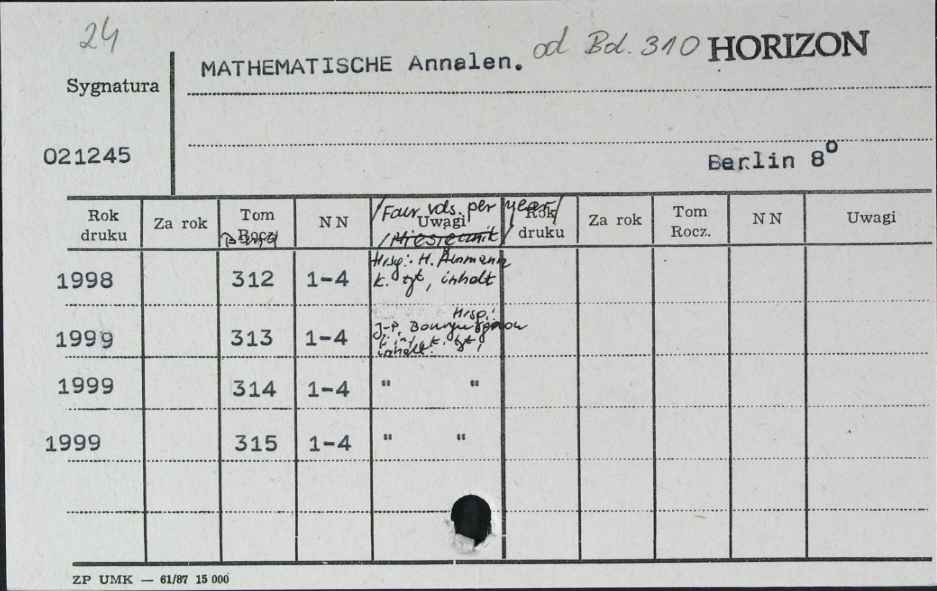 24
MATHEMATISCHE Annalen. od Bd. 310 HORIZON
Sygnatura
021245
Berlin 8º
Rok druku Za rok Tom Rocz. NN Uwagi Rok druku Za rok Tom Rocz. NN Uwagi
/Four vds. per year/
/Miesięcznik/
1998 312 1-4 Hrsg.: H. k. tyt, inhalt
1999 313 1-4 Hrsg.: J-P. k. tyt, inhalt.
1999 314 1-4 " "
1999 315 1-4 " "
ZP UMK — 61/87 15 000